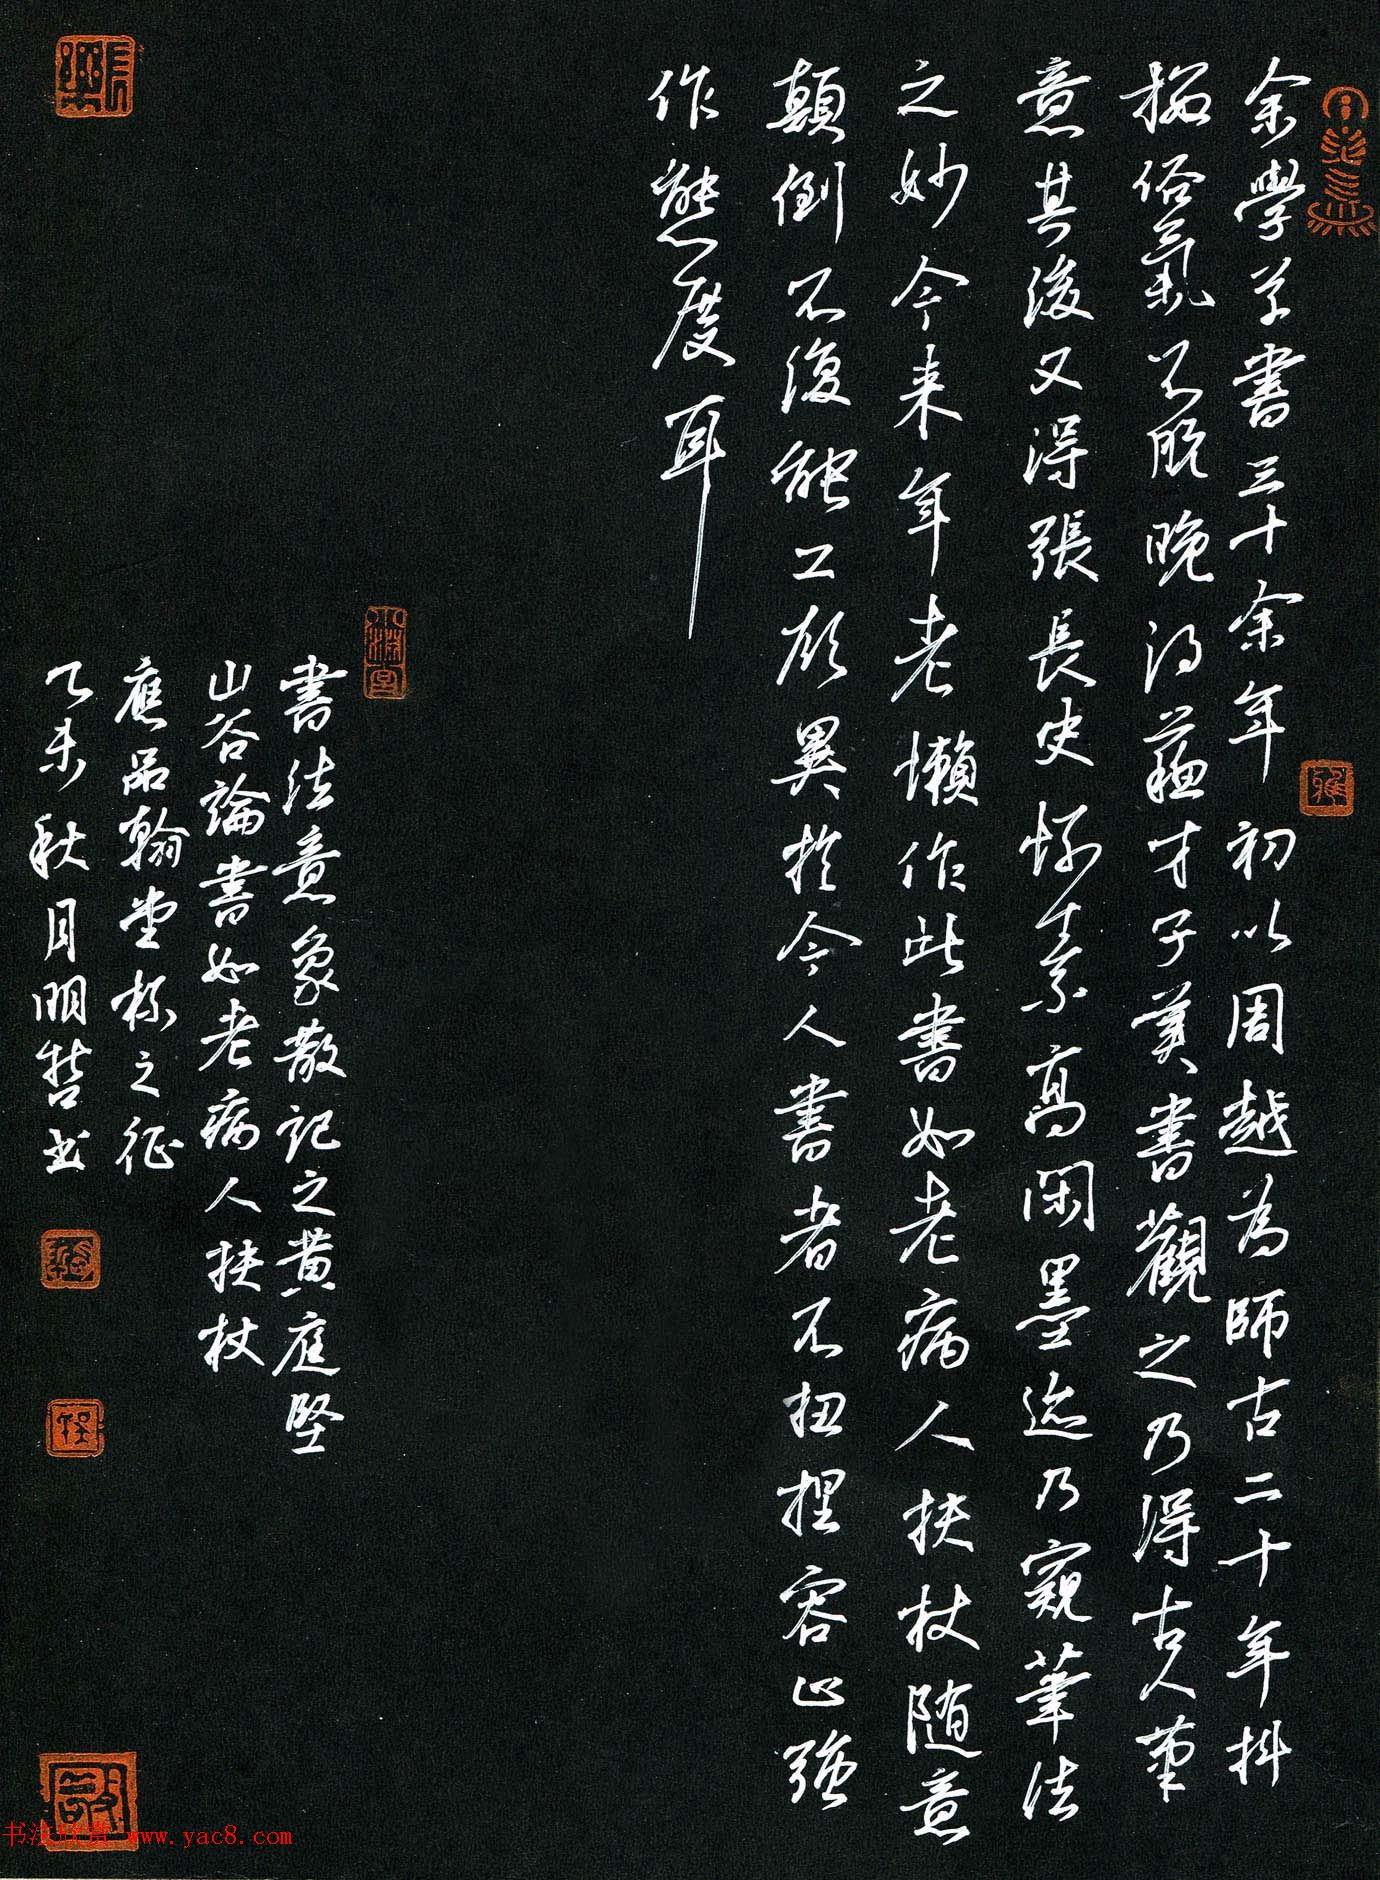 余學草書三十余年初以周越為師古二十年抖
擻俗氣不脱晚得蘇才子美書觀之乃得古人筆
意其後又得張長史怀素高閑墨迹乃窺筆法
之妙今来年老懶作此書如老病人扶杖随意
顛倒不復能工顧異於今人書者不扭捏容止強
作態度耳
書法意象散記之黄庭堅
山谷論書如老病人扶杖
應品翰堂楊之征
乙未秋月明哲书
书法欣赏 www.yac8.com